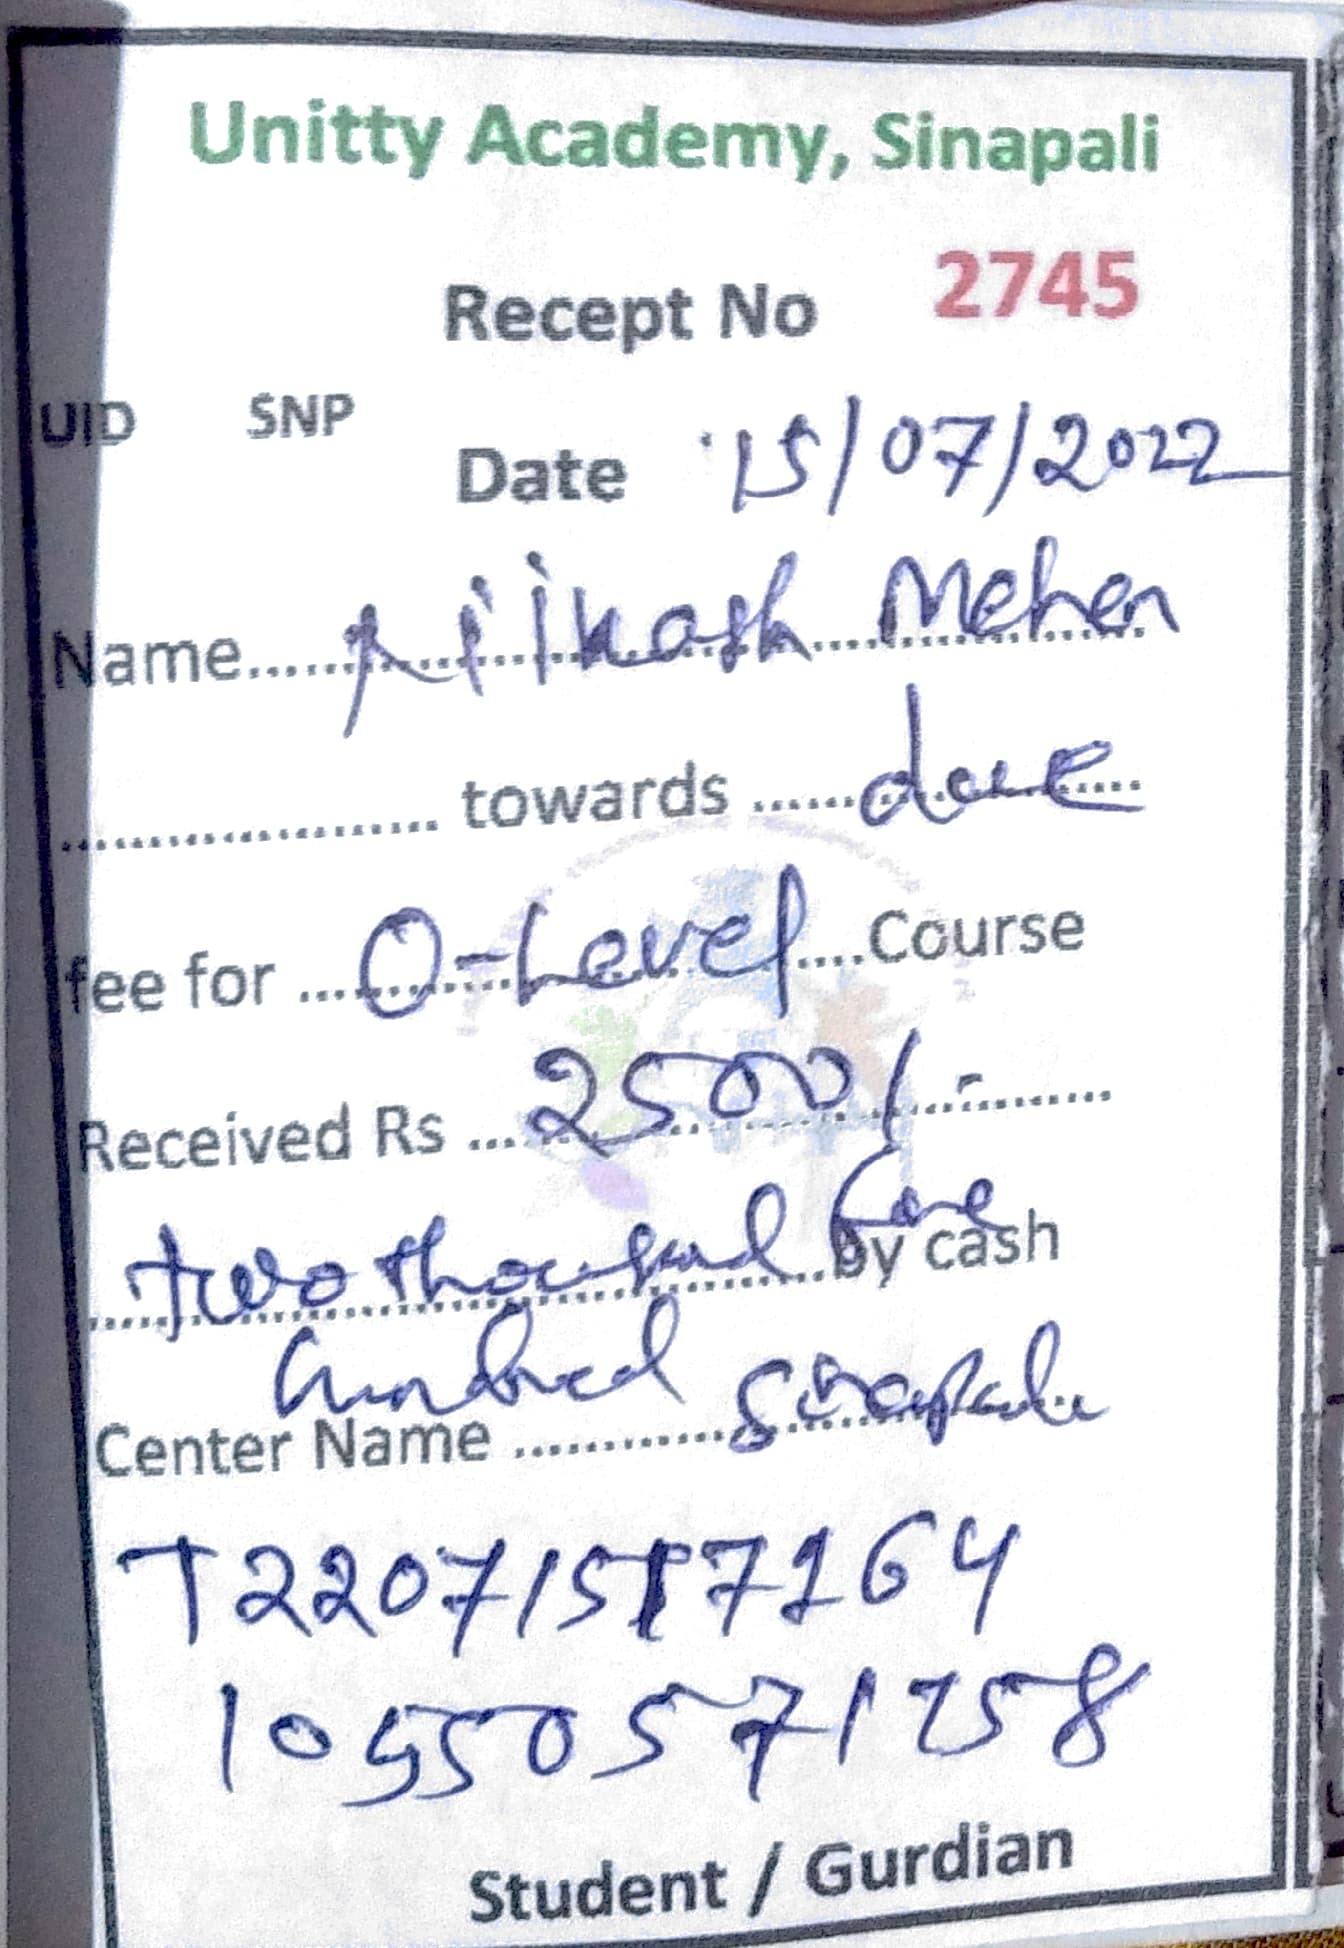 Unitty Academy, Sinapali
Recept No 2745
UID SNP
Date 15/07/2022
Name...... Meher
.................... towards ...... due
fee for ... O-Level .... Course
Received Rs ... 2500/-
two thousand five by cash
hundred
Center Name ............ Sinapali
T22071517164
10550571758
Student / Gurdian